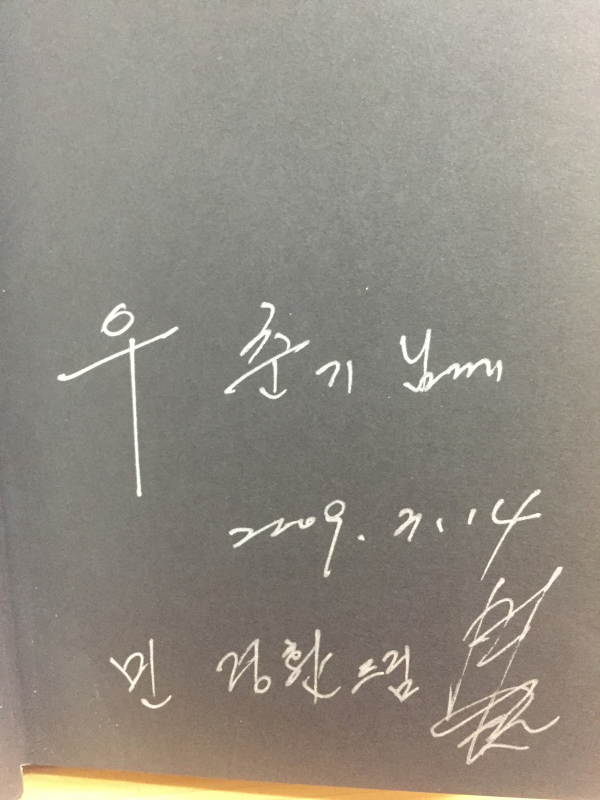 우 춘기 님께
2009. 7. 14
민 경환 드림